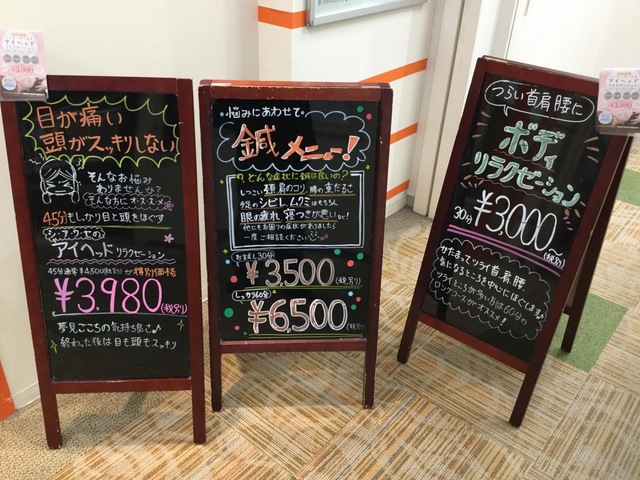 アイヘッド
¥3,980
目が痛い
頭がスッキリしない
そんなお悩み
ありませんか?
そんな方にオススメ
45分もしっかり目と頭をほぐす
シ・ア・ク・セ・の
アイヘッドリラクゼーション
45分通常¥4,500(税別)が特別価格
¥3,980(税別)
夢見ごこちの気持ち良さ♪
終わった後は目も頭もスッキリ
悩みにあわせて
鍼メニュー!
?どんな症状に鍼は良いの?
しつこい肩のコリ、腰の重だるさ
手足のシビレ、ムクミはもちろん
眼の疲れ、寝つきが悪いなど
他にもお困りの症状がありましたら
一度ご相談ください♪
お試し30分
¥3,500(税別)
しっかり60分
¥6,500(税別)
つらい首肩腰に
ボディ
リラクゼーション
30分¥3,000~
(税別)
せたまってツライ首肩腰
気になるところを中心にほぐします♪
ツライところが多い方は60分の
ロングコースがオススメ♪
¥3,980